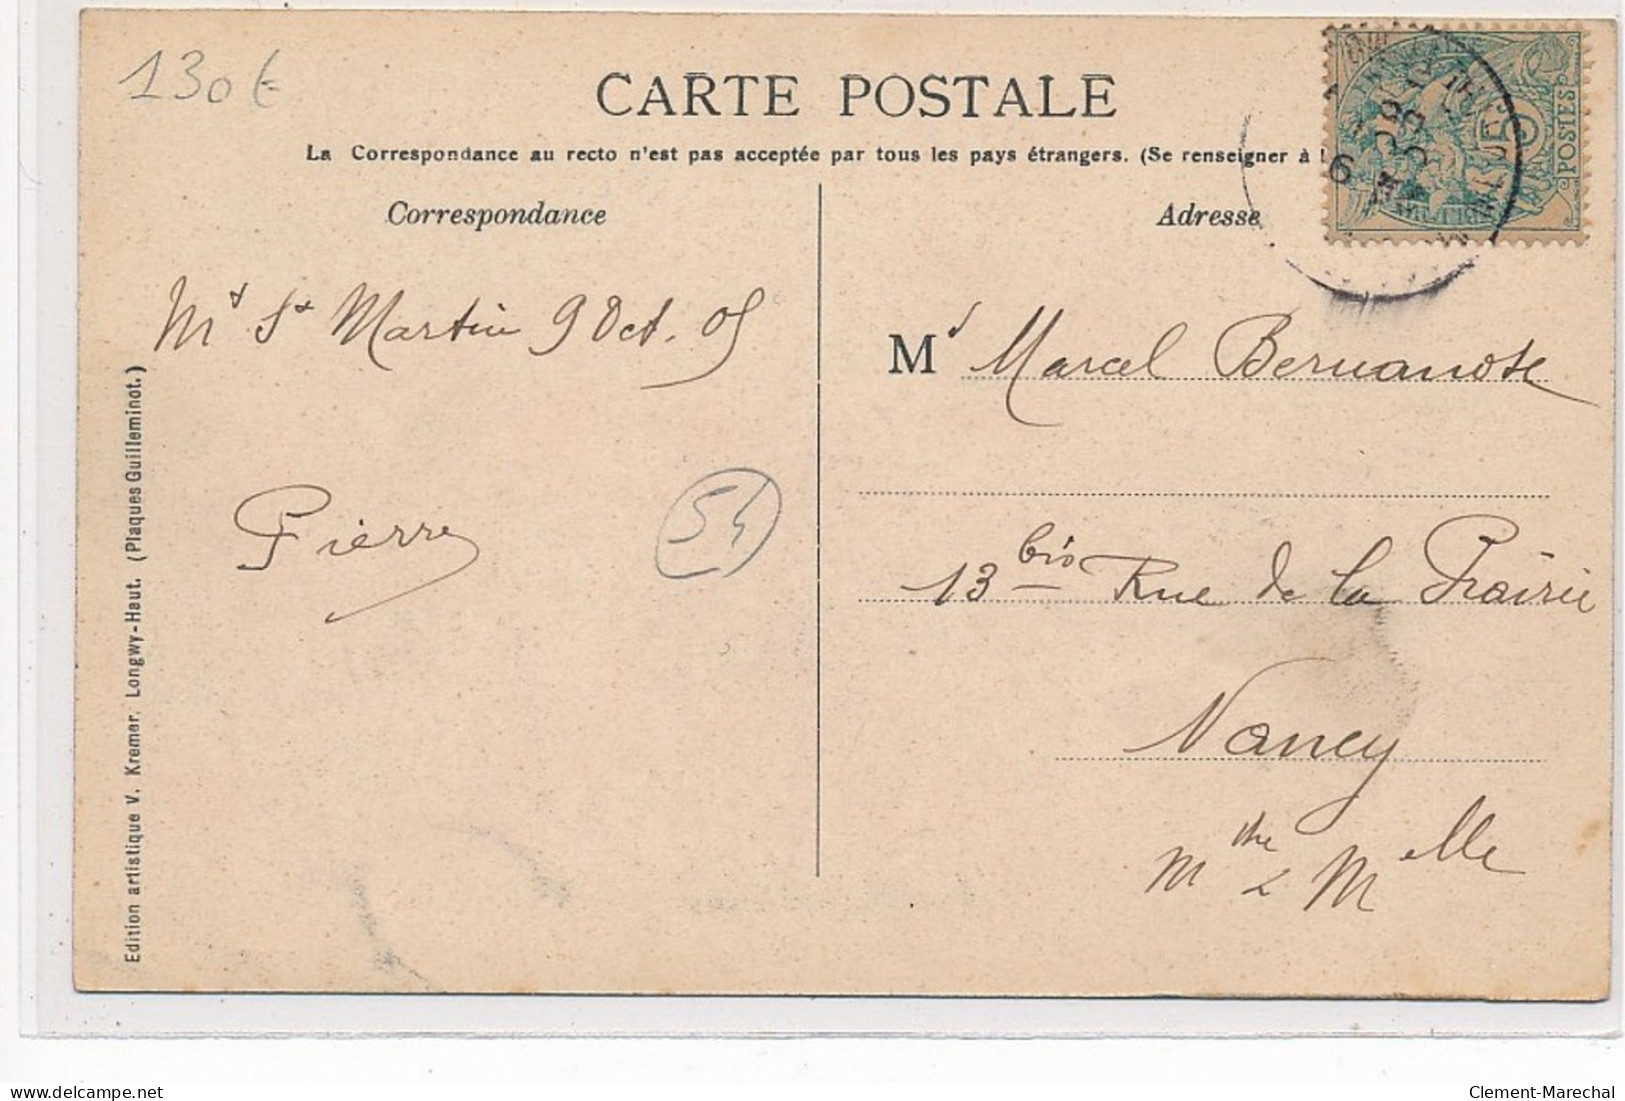 130 €
CARTE POSTALE
La Correspondance au recto n'est pas acceptée par tous les pays étrangers. (Se renseigner à
Correspondance
Adresse
POSTES
Mt St Martin 9 Oct. 05
Pierre
54
Md Marcel Bernanose
13 bis Rue de la Prairie
Nancy
Mme & Melle
Edition artistique V. Kremer, Longwy-Haut. (Plaques Guilleminot.)
delcampe.net
Clement-Marechal